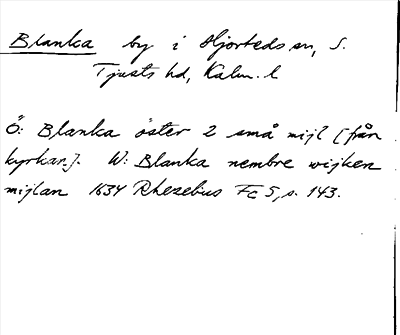 Blanka by i Hjorteds sn, S.
Tjusts hd, Kalm. l
Ö: Blanka öster 2 små mijl [från
kyrkan]. W: Blanka nembre wijken
mijlan 1634 Rhezebius Fc 5, s. 143.